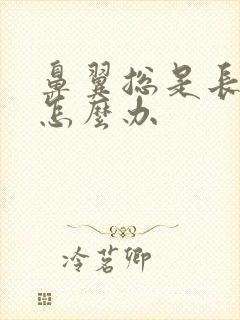 鼻翼总是長
怎麼办
冷茗卿